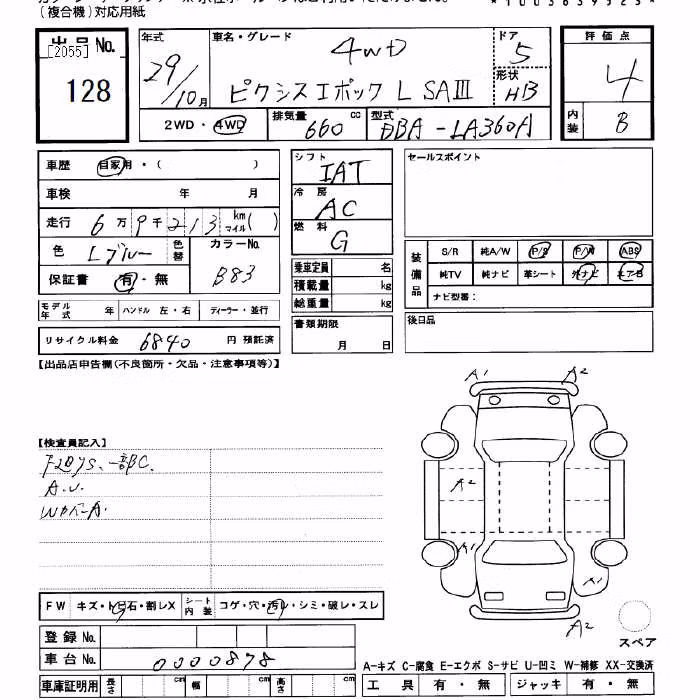 (複合機)対応用紙
出品No.
[2055]
128
年式
29/10月
車名・グレード
4WD
ピクシスエポック L SAⅢ
ドア
5
形状
HB
評価点
4
内装
B
2WD・4WD
排気量
660 cc
型式
DBA-LA360A
車歴 自家用・( )
車検 年 月
走行 6万9千213 km マイル( )
色 Lブルー 色替
カラーNo.
B83
保証書 有・無
モデル年式 年 ハンドル 左・右 ディーラー・並行
リサイクル料金 6840 円 預託済
シフト
IAT
冷房
AC
燃料
G
乗車定員 名
積載量 kg
総重量 kg
書類期限
月 日
セールスポイント
装備品
S/R 純A/W P/S P/W ABS
純TV 純ナビ 革シート 外ナビ エアB
ナビ型番:
後日品
【出品店申告欄(不良箇所・欠品・注意事項等)】
【検査員記入】
A.U.
F W キズ・トビ石・割レX シート内装 コゲ・穴・汚レ・シミ・破レ・スレ
登録No.
車台No. 0000878
車庫証明用 長さ cm 幅 cm 高さ cm
A1
A2
A2
A1
A1
A2
スペア
A-キズ C-腐食 E-エクボ S-サビ U-凹ミ W-補修 XX-交換済
工具 有・無 ジャッキ 有・無